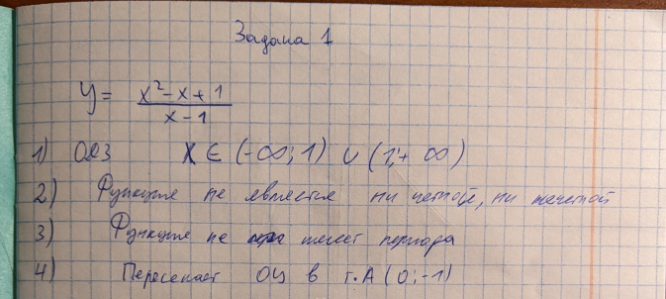 Задача 1
y = x²-x+1 / x-1
1) ОДЗ x ∈ (-∞; 1) ∪ (1; +∞)
2) Функция не является ни четной, ни нечетной
3) Функция не имеет периода
4) Пересекает Oy в т. A (0; -1)